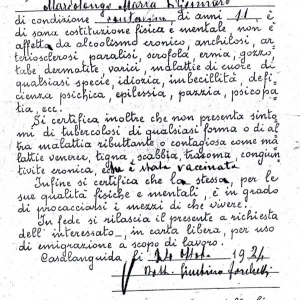 di condizione contadina di anni 11 è
di sana costituzione fisica e mentale non è
affetta da alcoolismo cronico, anchilosi, ar
teriosclerosi, paralisi, scrofola, ernia, gozzo,
tabe dermatite, varici, malattie di cuore di
qualsiasi specie, idiozia, imbecillità, defi-
cienza psichica, epilessia, pazzia, psicopa
tia, ecc.
Si certifica inoltre che non presenta sinto
mi di tubercolosi di qualsiasi forma o di al
tra malattia ributtante o contagiosa come ma
lattie veneree, tigna, scabbia, tracoma, congiun
tivite cronica, è stata vaccinata
Infine si certifica che la stessa, per le
sue qualità fisiche e mentali, è in grado
di procacciarsi i mezzi di che vivere.
In fede si rilascia il presente a richiesta
dell'interessato, in carta libera, per uso
di emigrazione a scopo di lavoro.
Casalanguida li 1924
Dott.